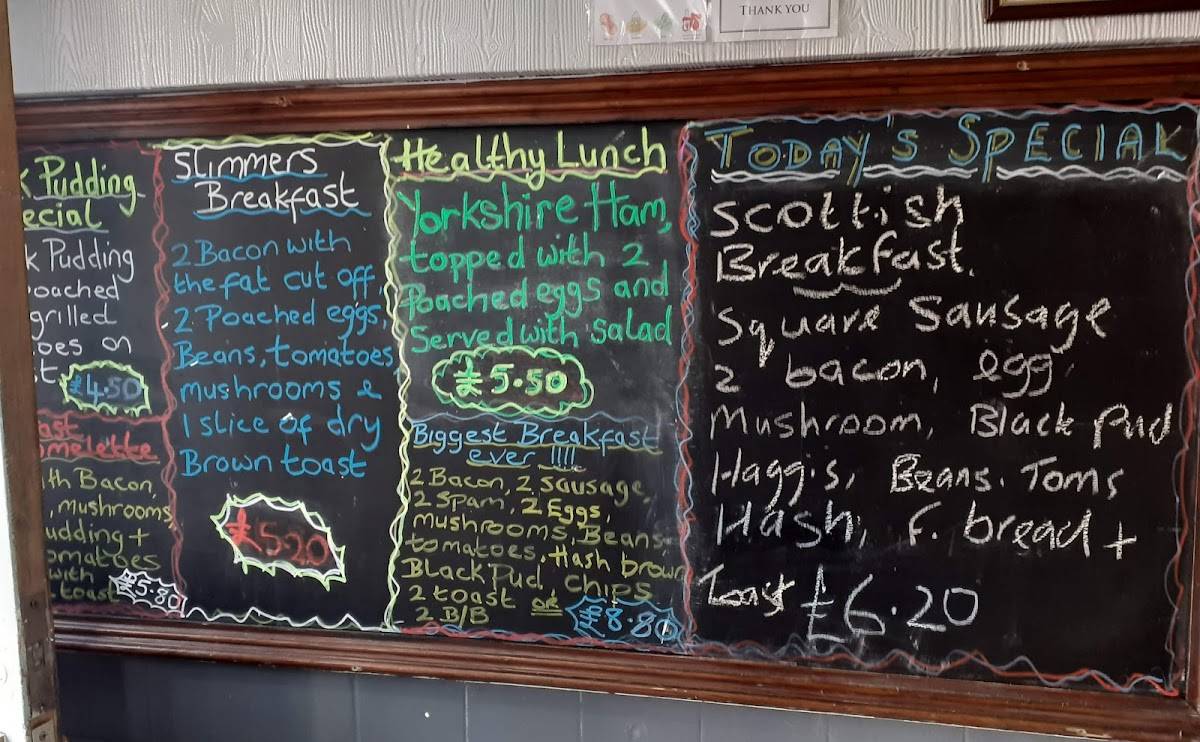 THANK YOU
Pudding
Pudding
grilled
on
£4.50
Bacon,
mushrooms,
+
with
toast
£5.80
Slimmers
Breakfast
2 Bacon with
the fat cut off,
2 Poached eggs,
Beans, tomatoes,
mushrooms &
1 slice of dry
Brown toast
£5.20
Healthy Lunch
Yorkshire Ham,
topped with 2
Poached eggs and
Served with salad
£5.50
Biggest Breakfast
ever !!!!
2 Bacon, 2 sausage,
2 Spam, 2 Eggs,
mushrooms, Beans,
tomatoes, Hash brown
Black Pud, Chips
2 toast or
2 B/B
£8.80
TODAY'S SPECIAL
Scottish
Breakfast.
Square Sausage
2 bacon, egg,
Mushroom, Black Pud
Haggis, Beans. Toms
Hash, f. bread +
Toast £6.20